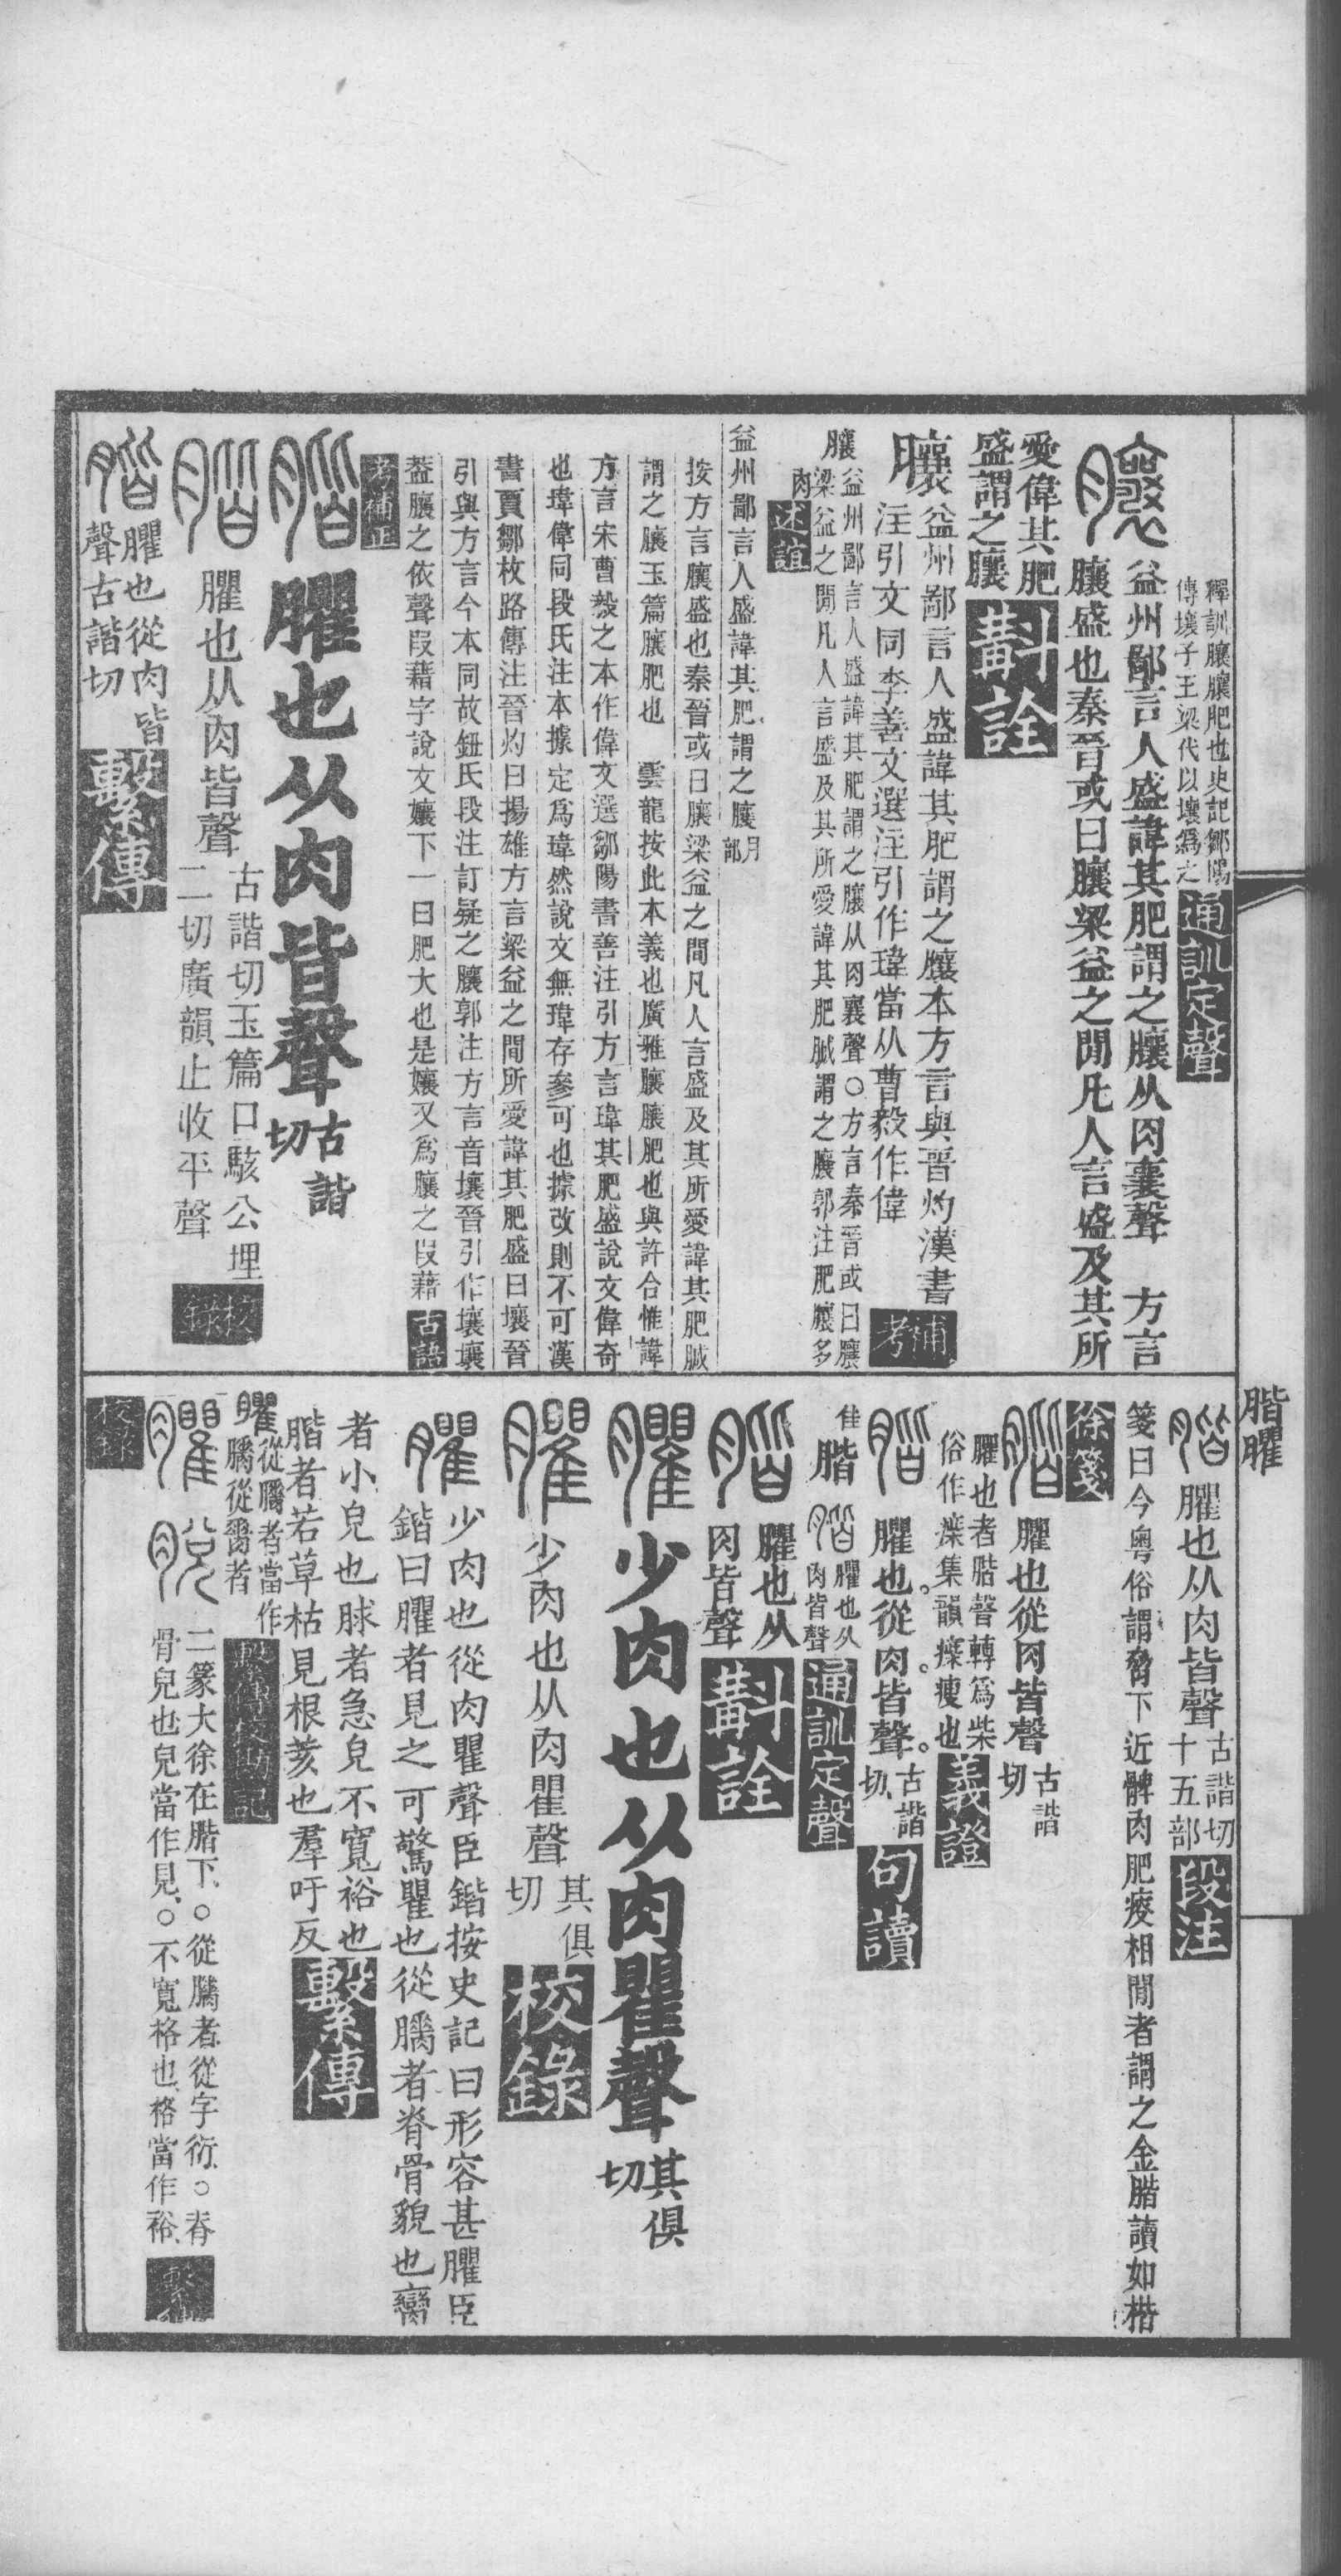 釋訓䑋䑋肥也史記鄒陽
傳壤子王梁代以壤爲之
通訓定聲
益州鄙言人盛諱其肥謂之䑋从肉襄聲 方言
䑋盛也秦晉或曰䑋梁益之閒凡人言盛及其所
愛偉其肥
盛謂之䑋
斠詮
䑋益州鄙言人盛諱其肥謂之䑋本方言與晉灼漢書
注引文同李善文選注引作瑋當从曹毅作偉
補考
䑋益州鄙言人盛諱其肥謂之䑋从肉襄聲○方言秦晉或曰䑋
梁益之閒凡人言盛及其所愛諱其肥䐗謂之䑋郭注肥䑋多
肉
述誼
益州鄙言人盛諱其肥謂之䑋
月部
按方言䑋盛也秦晉或曰䑋梁益之間凡人言盛及其所愛諱其肥䐗
謂之䑋玉篇䑋肥也 雲龍按此本義也廣雅䑋䑋肥也與許合惟諱
方言宋曹毅之本作偉文選鄒陽書善注引方言瑋其肥盛說文偉奇
也瑋偉同段氏注本據定爲瑋然說文無瑋存參可也據改則不可漢
書賈鄒枚路傳注晉灼曰揚雄方言梁益之間所愛諱其肥盛曰壤晉
引與方言今本同故鈕氏段注訂疑之䑋郭注方言音壤晉引作壤壤
葢䑋之依聲叚藉字說文孃下一曰肥大也是孃又爲䑋之叚藉
古語
考補正
腒也从肉皆聲
古諧切
臞也从肉皆聲
古諧切玉篇口駭公埋
二切廣韻止收平聲
校錄
臞也從肉皆
聲古諧切
繫傳
腊臞
臞也从肉皆聲
古諧切
十五部
段注
箋曰今粵俗謂脅下近髀肉肥瘦相閒者謂之金腊讀如楷
徐箋
臞也從肉皆聲
古諧切
臞也者腊聲轉爲柴
俗作㾹集韻㾹瘦也
義證
臞也從肉皆聲
古諧切
句讀
佳
臞也从
肉皆聲
通訓定聲
臞也从
肉皆聲
斠詮
少肉也从肉瞿聲
其俱切
少肉也从肉瞿聲
其俱切
校錄
少肉也從肉瞿聲臣鍇按史記曰形容甚臞臣
鍇曰臞者見之可驚瞿也從臇者脊骨貌也臠
者小皃也脙者急皃不寬裕也
腊者若草枯見根荄也羣吁反
繫傳
臞從臇者當作
臇從爾者
繫傳校勘記
二篆大徐在腊下○從臇者從字衍○脊
骨皃也皃當作見○不寬格也格當作裕
校錄